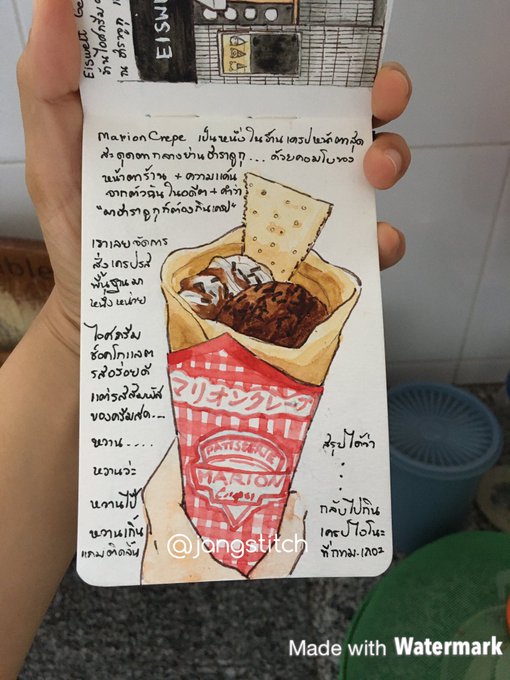 Eiswelt
EISW
Marion Crepe เป็นหนึ่งในร้านเครปหน้าตาสุด
สะดุดตากลางย่านฮาราจูกุ... ด้วยคอมโบของ
หน้าตาร้าน + ความแค้น
จากตัวฉันในอดีต + คำว่า
"มาฮาราจูกุก็ต้องกินเครป"
เขาเลยจัดการ
สั่งเครปรส
พื้นฐานมา
หนึ่งหน่วย
ไอศครีม
ช็อคโกแลต
รสอร่อยดี
แต่รสสัมผัส
ของครีมสด...
หวาน....
หวานว่ะ
หวานไป
หวานเกิ้น
แถมติดลิ้น
マリオンクレープ
PATISSERIE
MARION
Crepes
สรุปได้ว่า
.
.
.
กลับไปกิน
เครปไอโนะ
ที่กทม. เถอะ
@jongstitch
Made with Watermark